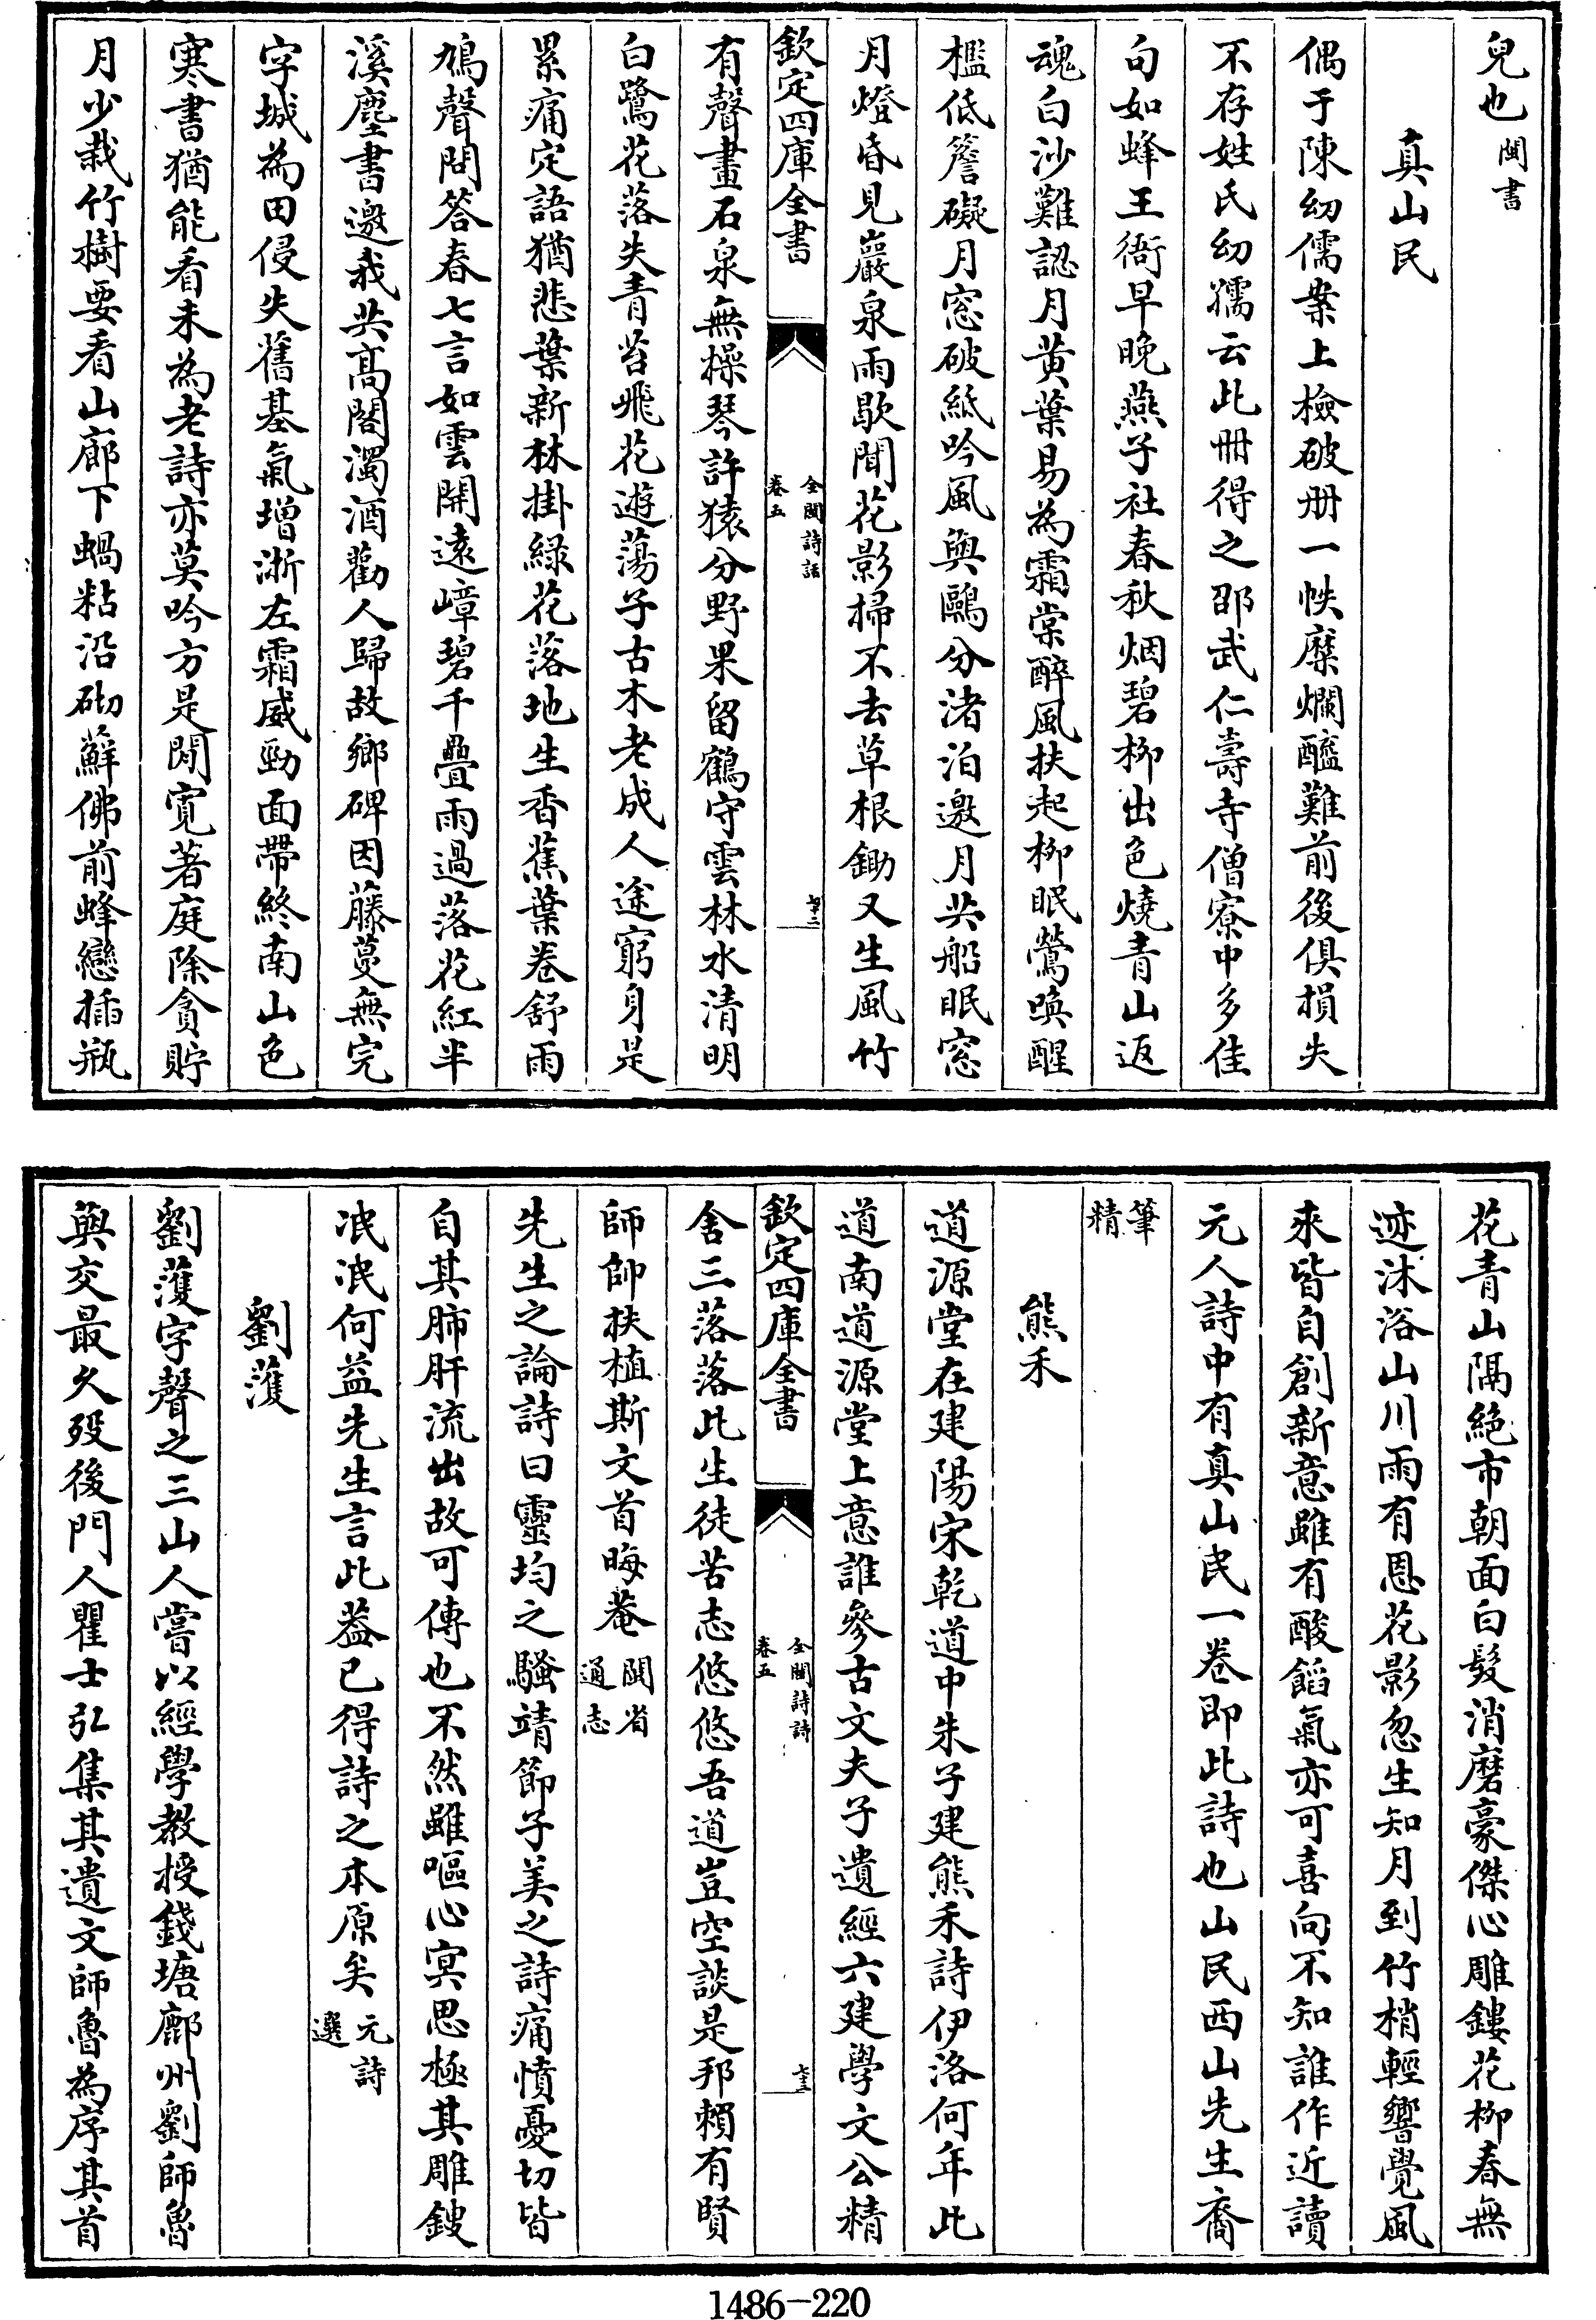 兒也閩書
真山民
偶于陳幼儒案上檢破册一帙糜爛醯雞前後俱損失
不存姓氏幼孺云此冊得之邵武仁壽寺僧寮中多佳
句如蜂王衙早晚燕子社春秋烟碧柳出色燒青山返
魂白沙難認月黄葉易為霜棠醉風扶起柳眠鶯喚醒
檻低簷礙月窓破紙吟風與鷗分渚泊邀月共船眠窓
月燈昏見巖泉雨歇聞花影掃不去草根鋤又生風竹
欽定四庫全書
全閩詩話
卷五
有聲畫石泉無操琴許猿分野果留鶴守雲林水清明
白鷺花落失青苔飛花遊蕩子古木老成人途窮身是
累痛定語猶悲葉新林掛緑花落地生香蕉葉卷舒雨
鳩聲問答春七言如雲開遠嶂碧千疊雨過落花紅半
溪塵書邀我共高閣濁酒勸人歸故鄉碑因藤蔓無完
字城為田侵失舊基氣增浙左霜威勁面帶終南山色
寒書猶能看未為老詩亦莫吟方是閒寛著庭除貪貯
月少栽竹樹要看山廊下蝸粘沿砌蘚佛前蜂戀插瓶
花青山隔絶市朝面白髮消磨豪傑心雕鏤花柳春無
迹沐浴山川雨有恩花影忽生知月到竹梢輕響覺風
來皆自創新意雖有酸餡氣亦可喜向不知誰作近讀
元人詩中有真山民一卷即此詩也山民西山先生裔
筆
精
熊禾
道源堂在建陽宋乾道中朱子建熊禾詩伊洛何年此
道南道源堂上意誰參古文夫子遺經六建學文公精
欽定四庫全書
全閩詩詩
卷五
舍三落落此生徒苦志悠悠吾道豈空談是邦賴有賢
師帥扶植斯文首晦菴閩省通志
先生之論詩曰靈均之騷靖節子美之詩痛憤憂切皆
自其肺肝流出故可傳也不然雖嘔心冥思極其雕鎪
泯泯何益先生言此葢已得詩之本原矣元詩選
劉蒦
劉蒦字聲之三山人嘗以經學教授錢塘鄜州劉師魯
與交最久歿後門人瞿士弘集其遺文師魯為序其首
1486-220